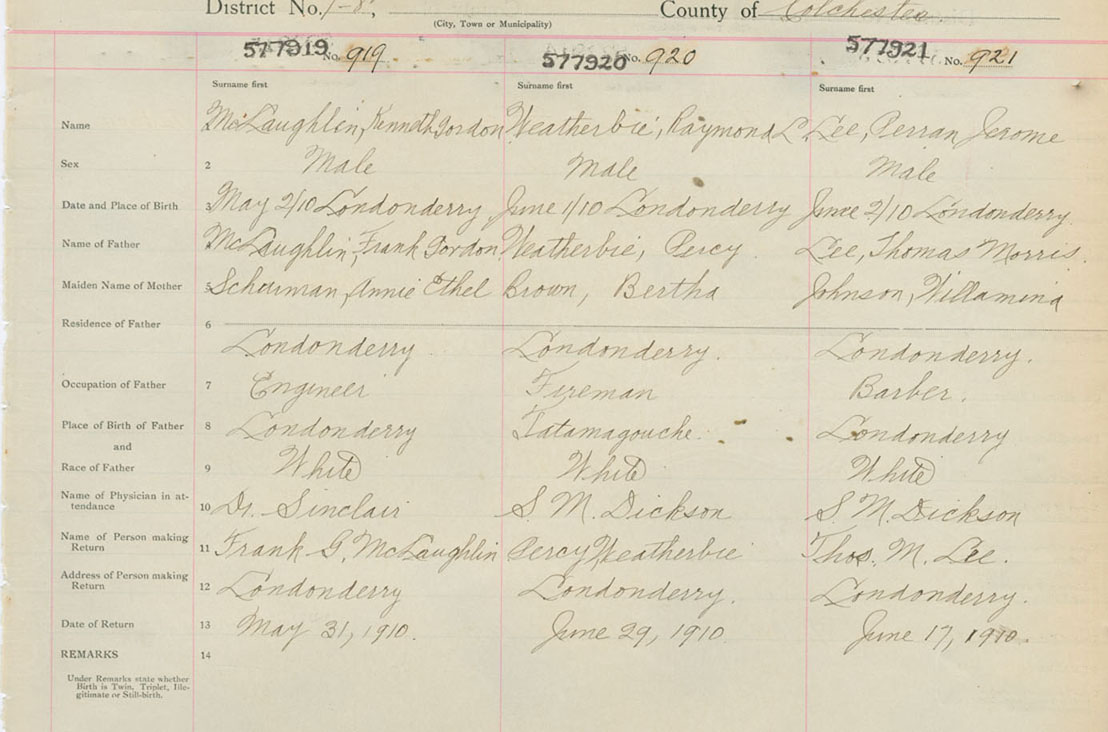 District No. 1-8, County of Colchester
(City, Town or Municipality)
577919 No. 919 577920 No. 920 577921 No. 921
Surname first Surname first Surname first
Name McLaughlin, Kenneth Gordon Weatherbie, Raymond L. Lee, Perran Jerome
Sex 2 Male Male Male
Date and Place of Birth 3 May 2/10 Londonderry June 1/10 Londonderry June 2/10 Londonderry.
Name of Father McLaughlin, Frank Gordon Weatherbie, Percy Lee, Thomas Morris.
Maiden Name of Mother 5 Schurman, Annie Ethel Brown, Bertha Johnson, Willamina
Residence of Father 6
Londonderry Londonderry. Londonderry.
Occupation of Father 7 Engineer Fireman Barber.
Place of Birth of Father 8 Londonderry Tatamagouche. Londonderry
and
Race of Father 9 White White White
Name of Physician in at-
tendance 10 Dr. Sinclair S. M. Dickson S. M. Dickson
Name of Person making
Return 11 Frank G. McLaughlin Percy Weatherbie Thos. M. Lee.
Address of Person making
Return 12 Londonderry Londonderry. Londonderry.
Date of Return 13 May 31, 1910. June 29, 1910 June 17, 1910.
REMARKS 14
Under Remarks state whether
Birth is Twin, Triplet, Ille-
gitimate or Still-birth.